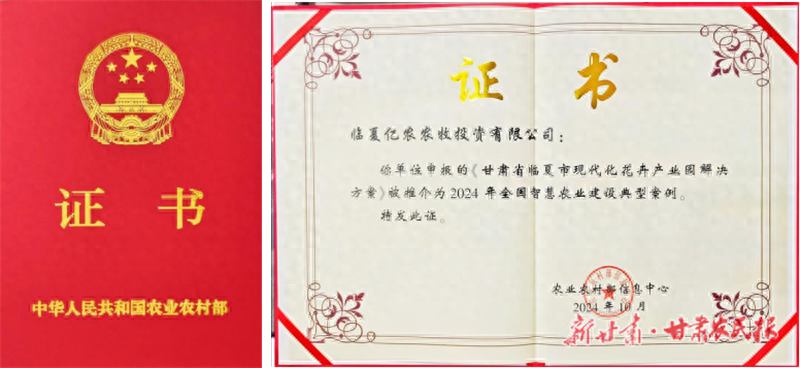 证 书
中华人民共和国农业农村部
证 书
临夏亿农农牧投资有限公司：
你单位申报的《甘肃省临夏市现代化花卉产业园解决
方案》被推介为2024年全国智慧农业建设典型案例。
特发此证。
农业农村部信息中心
2024年10月
新甘肃·甘肃农民报